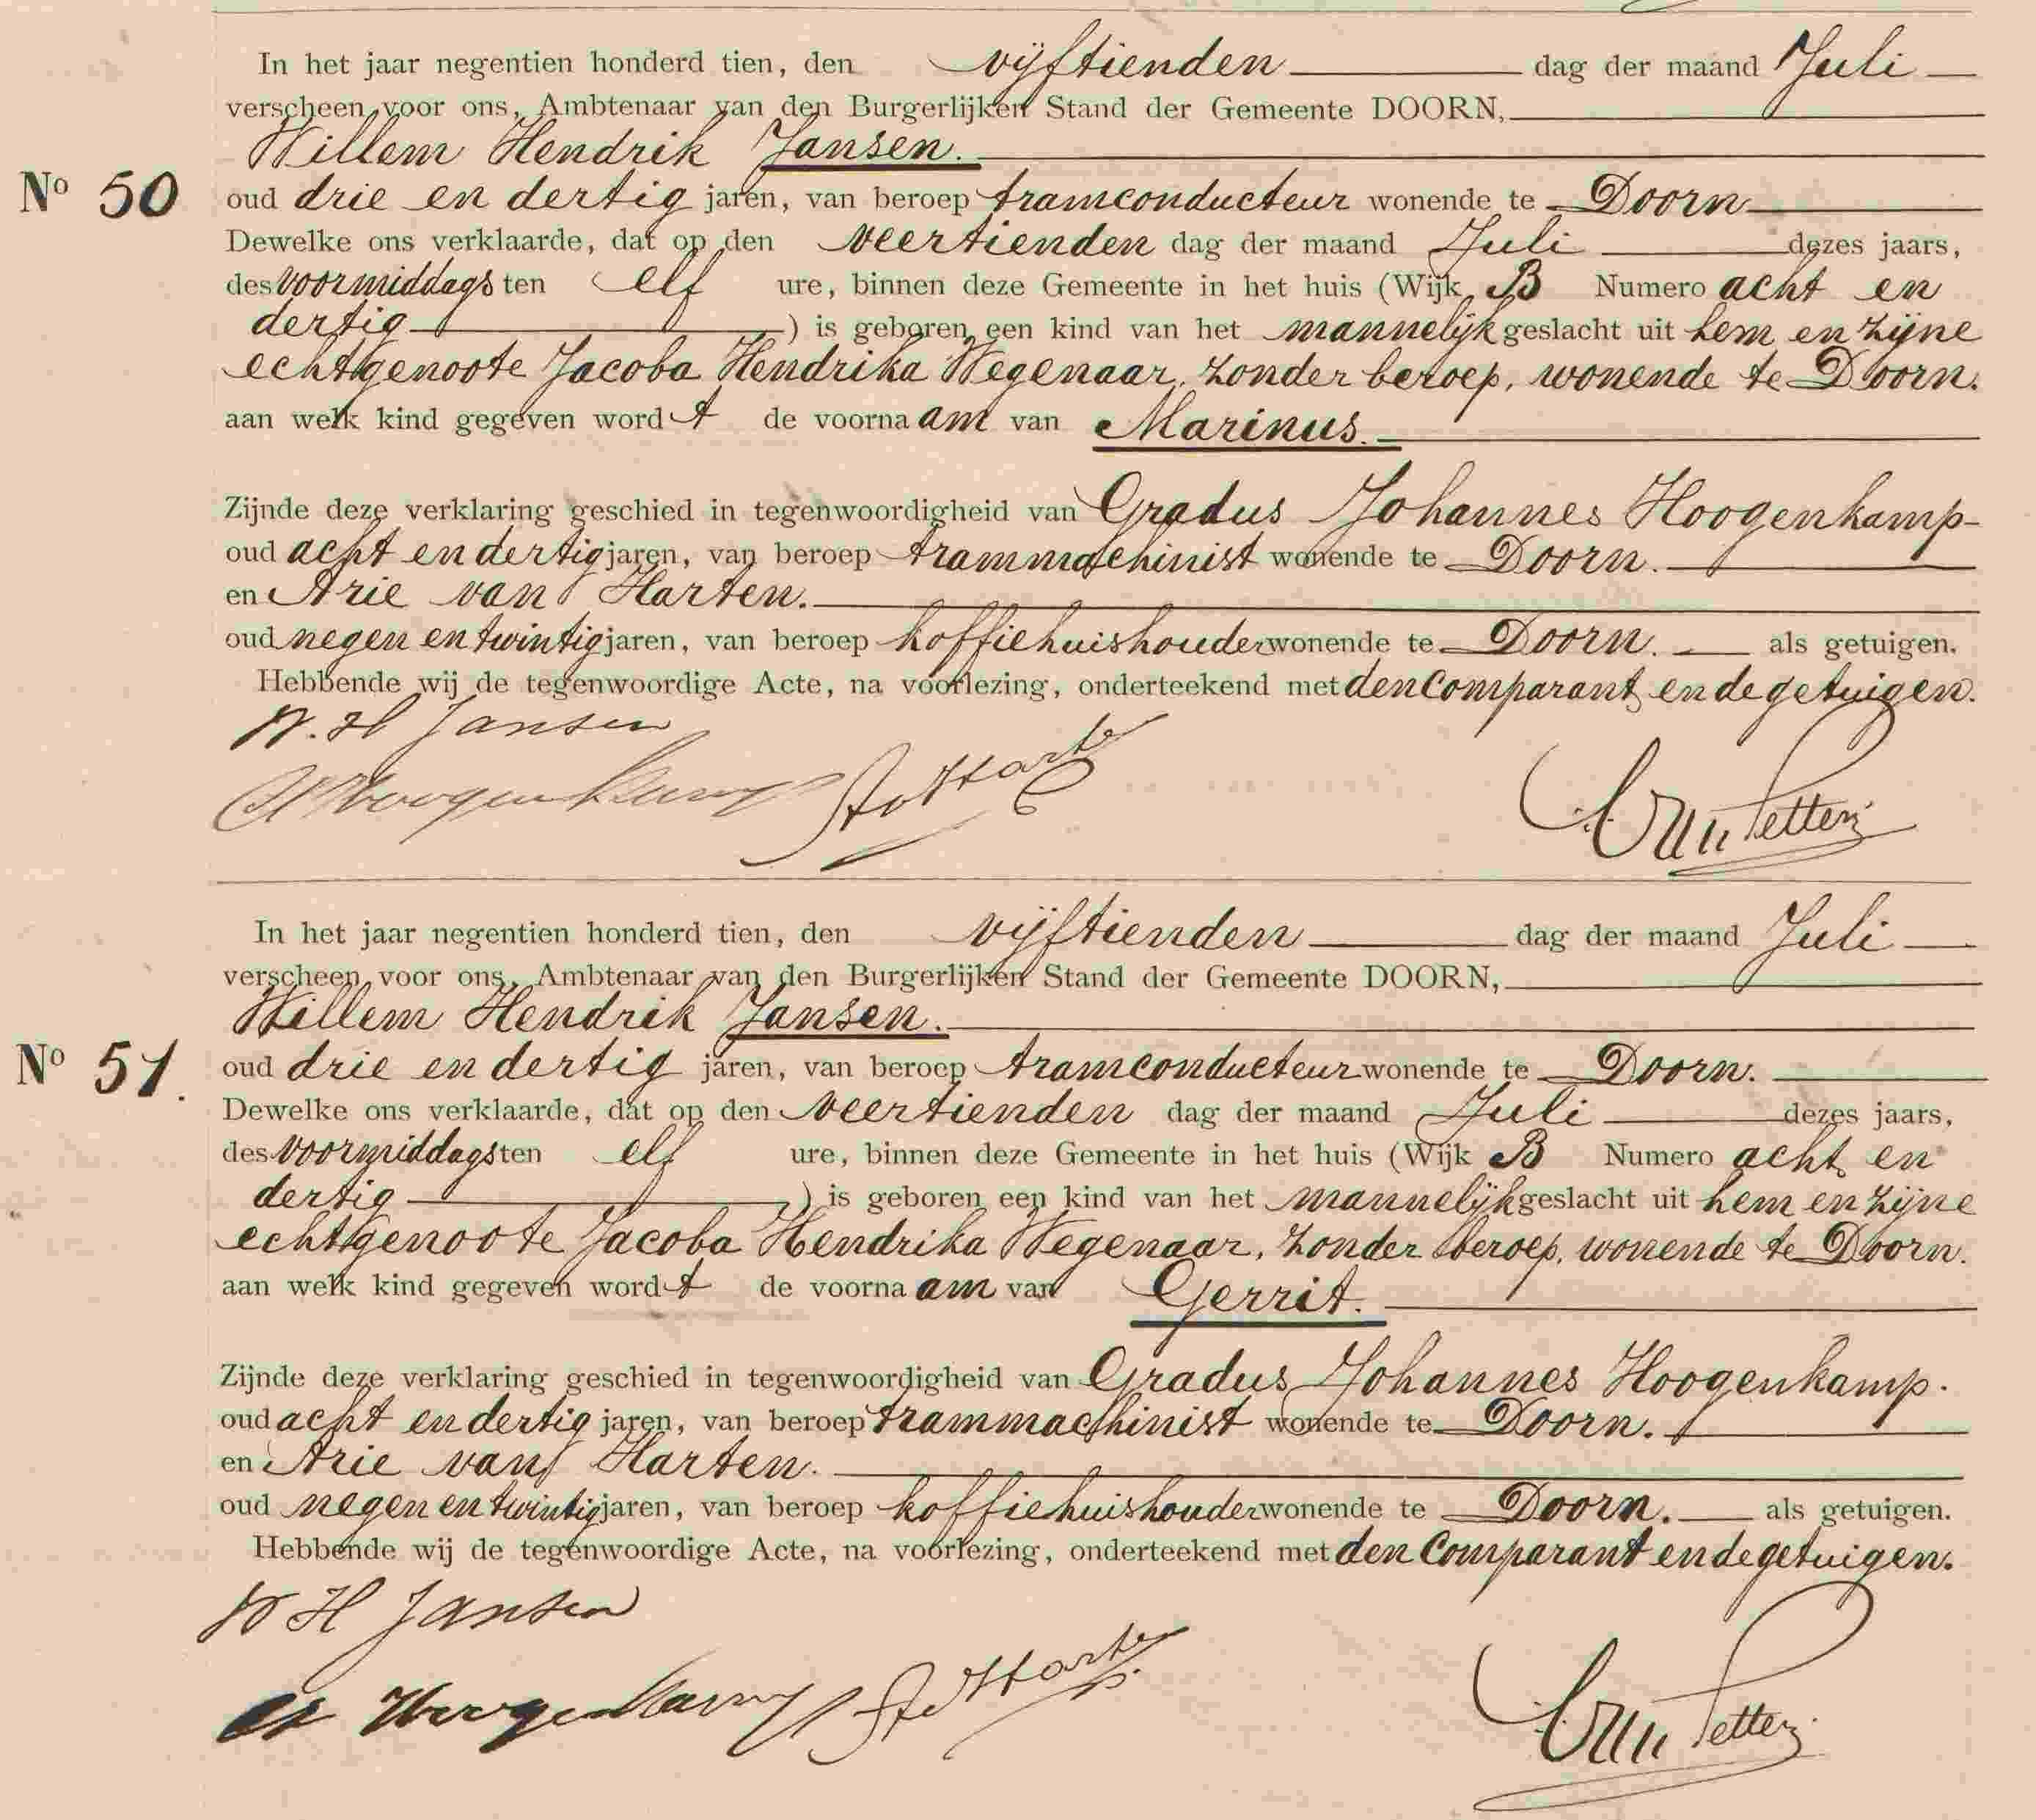 In het jaar negentien honderd tien, den vijftienden dag der maand Juli
verscheen voor ons, Ambtenaar van den Burgerlijken Stand der Gemeente DOORN,
Willem Hendrik Jansen.
No 50
oud drie en dertig jaren, van beroep tramconducteur wonende te Doorn
Dewelke ons verklaarde, dat op den veertienden dag der maand Juli dezes jaars,
des voormiddags ten elf ure, binnen deze Gemeente in het huis (Wijk B Numero acht en
dertig ) is geboren een kind van het mannelijk geslacht uit hem en zijne
echtgenoote Jacoba Hendrika Wegenaar, zonder beroep, wonende te Doorn.
aan welk kind gegeven wordt de voornaam van Marinus.
Zijnde deze verklaring geschied in tegenwoordigheid van Gradus Johannes Hoogenkamp
oud acht en dertig jaren, van beroep trammachinist wonende te Doorn.
en Arie van Harten.
oud negen en twintig jaren, van beroep koffiehuishouder wonende te Doorn. als getuigen.
Hebbende wij de tegenwoordige Acte, na voorlezing, onderteekend met den Comparant en de getuigen.
W. H Jansen
In het jaar negentien honderd tien, den vijftienden dag der maand Juli
verscheen voor ons, Ambtenaar van den Burgerlijken Stand der Gemeente DOORN,
Willem Hendrik Jansen.
No 51.
oud drie en dertig jaren, van beroep tramconducteur wonende te Doorn.
Dewelke ons verklaarde, dat op den veertienden dag der maand Juli dezes jaars,
des voormiddags ten elf ure, binnen deze Gemeente in het huis (Wijk B Numero acht en
dertig ) is geboren een kind van het mannelijk geslacht uit hem en zijne
echtgenoote Jacoba Hendrika Wegenaar, zonder beroep, wonende te Doorn.
aan welk kind gegeven wordt de voornaam van Gerrit.
Zijnde deze verklaring geschied in tegenwoordigheid van Gradus Johannes Hoogenkamp.
oud acht en dertig jaren, van beroep trammachinist wonende te Doorn.
en Arie van Harten.
oud negen en twintig jaren, van beroep koffiehuishouder wonende te Doorn. als getuigen.
Hebbende wij de tegenwoordige Acte, na voorlezing, onderteekend met den Comparant en de getuigen.
W H Jansen